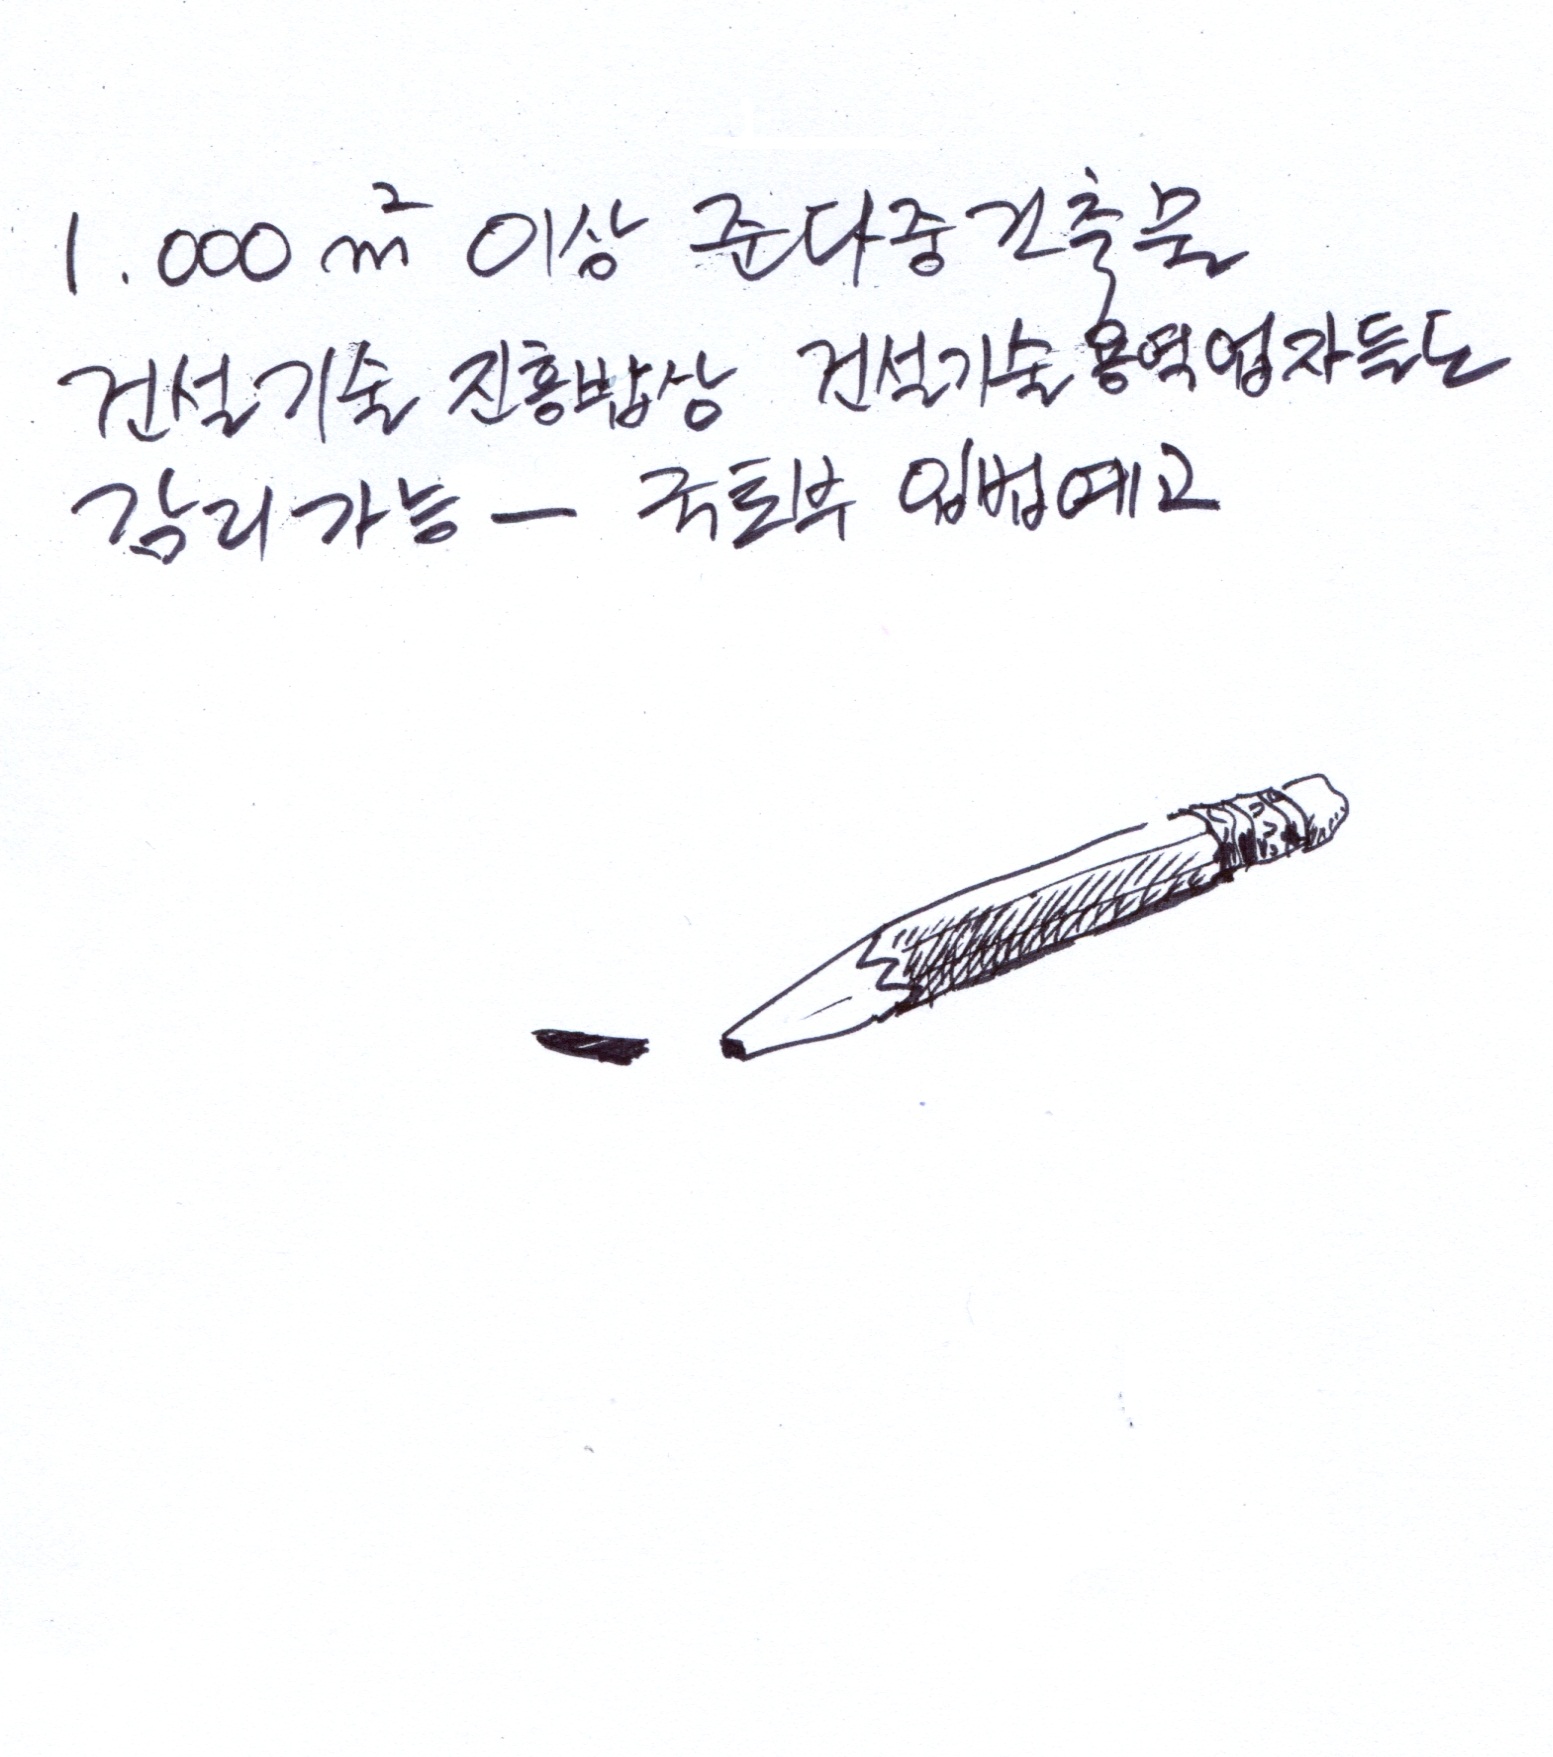 1.000㎡ 이상 준다중건축물
건설기술 진흥밥상 건설기술용역업자들도
감리가능 - 국토부 입법예고